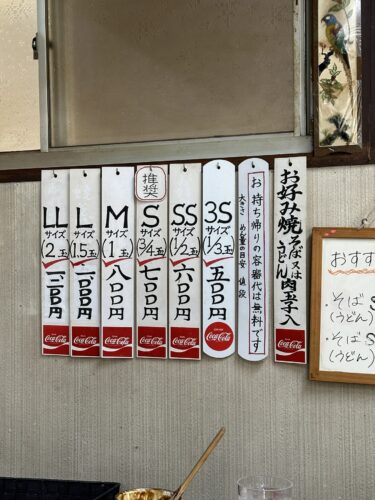 おすす
・そばS
(うどん)
・そばS
(うどん)
お好み焼 そば又は
うどん 肉玉子入
Coca-Cola
お持ち帰りの容器代は無料です
大きさ めん量の目安 値段
3S サイズ (1/3玉) 五〇〇円
Coca-Cola
SS サイズ (1/2玉) 六〇〇円
Coca-Cola
推奨
S サイズ (3/4玉) 七〇〇円
Coca-Cola
M サイズ (1玉) 八〇〇円
Coca-Cola
L サイズ (1.5玉) 一〇〇〇円
Coca-Cola
LL サイズ (2玉) 一二〇〇円
Coca-Cola